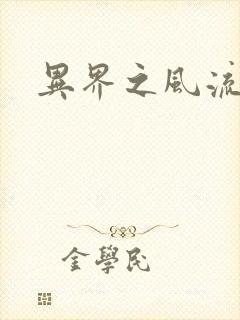 異界之風流
金學民